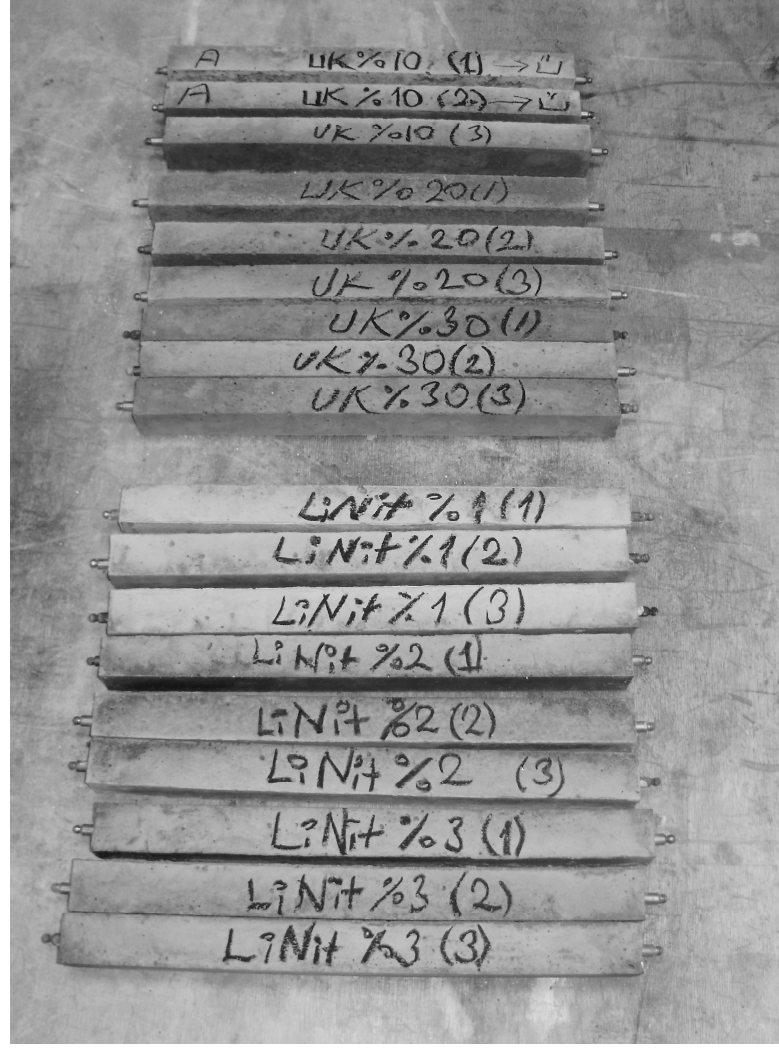 A UK %10 (1) → Ü
A UK %10 (2) → Ü
UK %10 (3)
UK %20 (1)
UK %20 (2)
UK %20 (3)
UK %30 (1)
UK %30 (2)
UK %30 (3)
LiNit %1 (1)
LiNit %1 (2)
LiNit %1 (3)
LiNit %2 (1)
LiNit %2 (2)
LiNit %2 (3)
LiNit %3 (1)
LiNit %3 (2)
LiNit %3 (3)